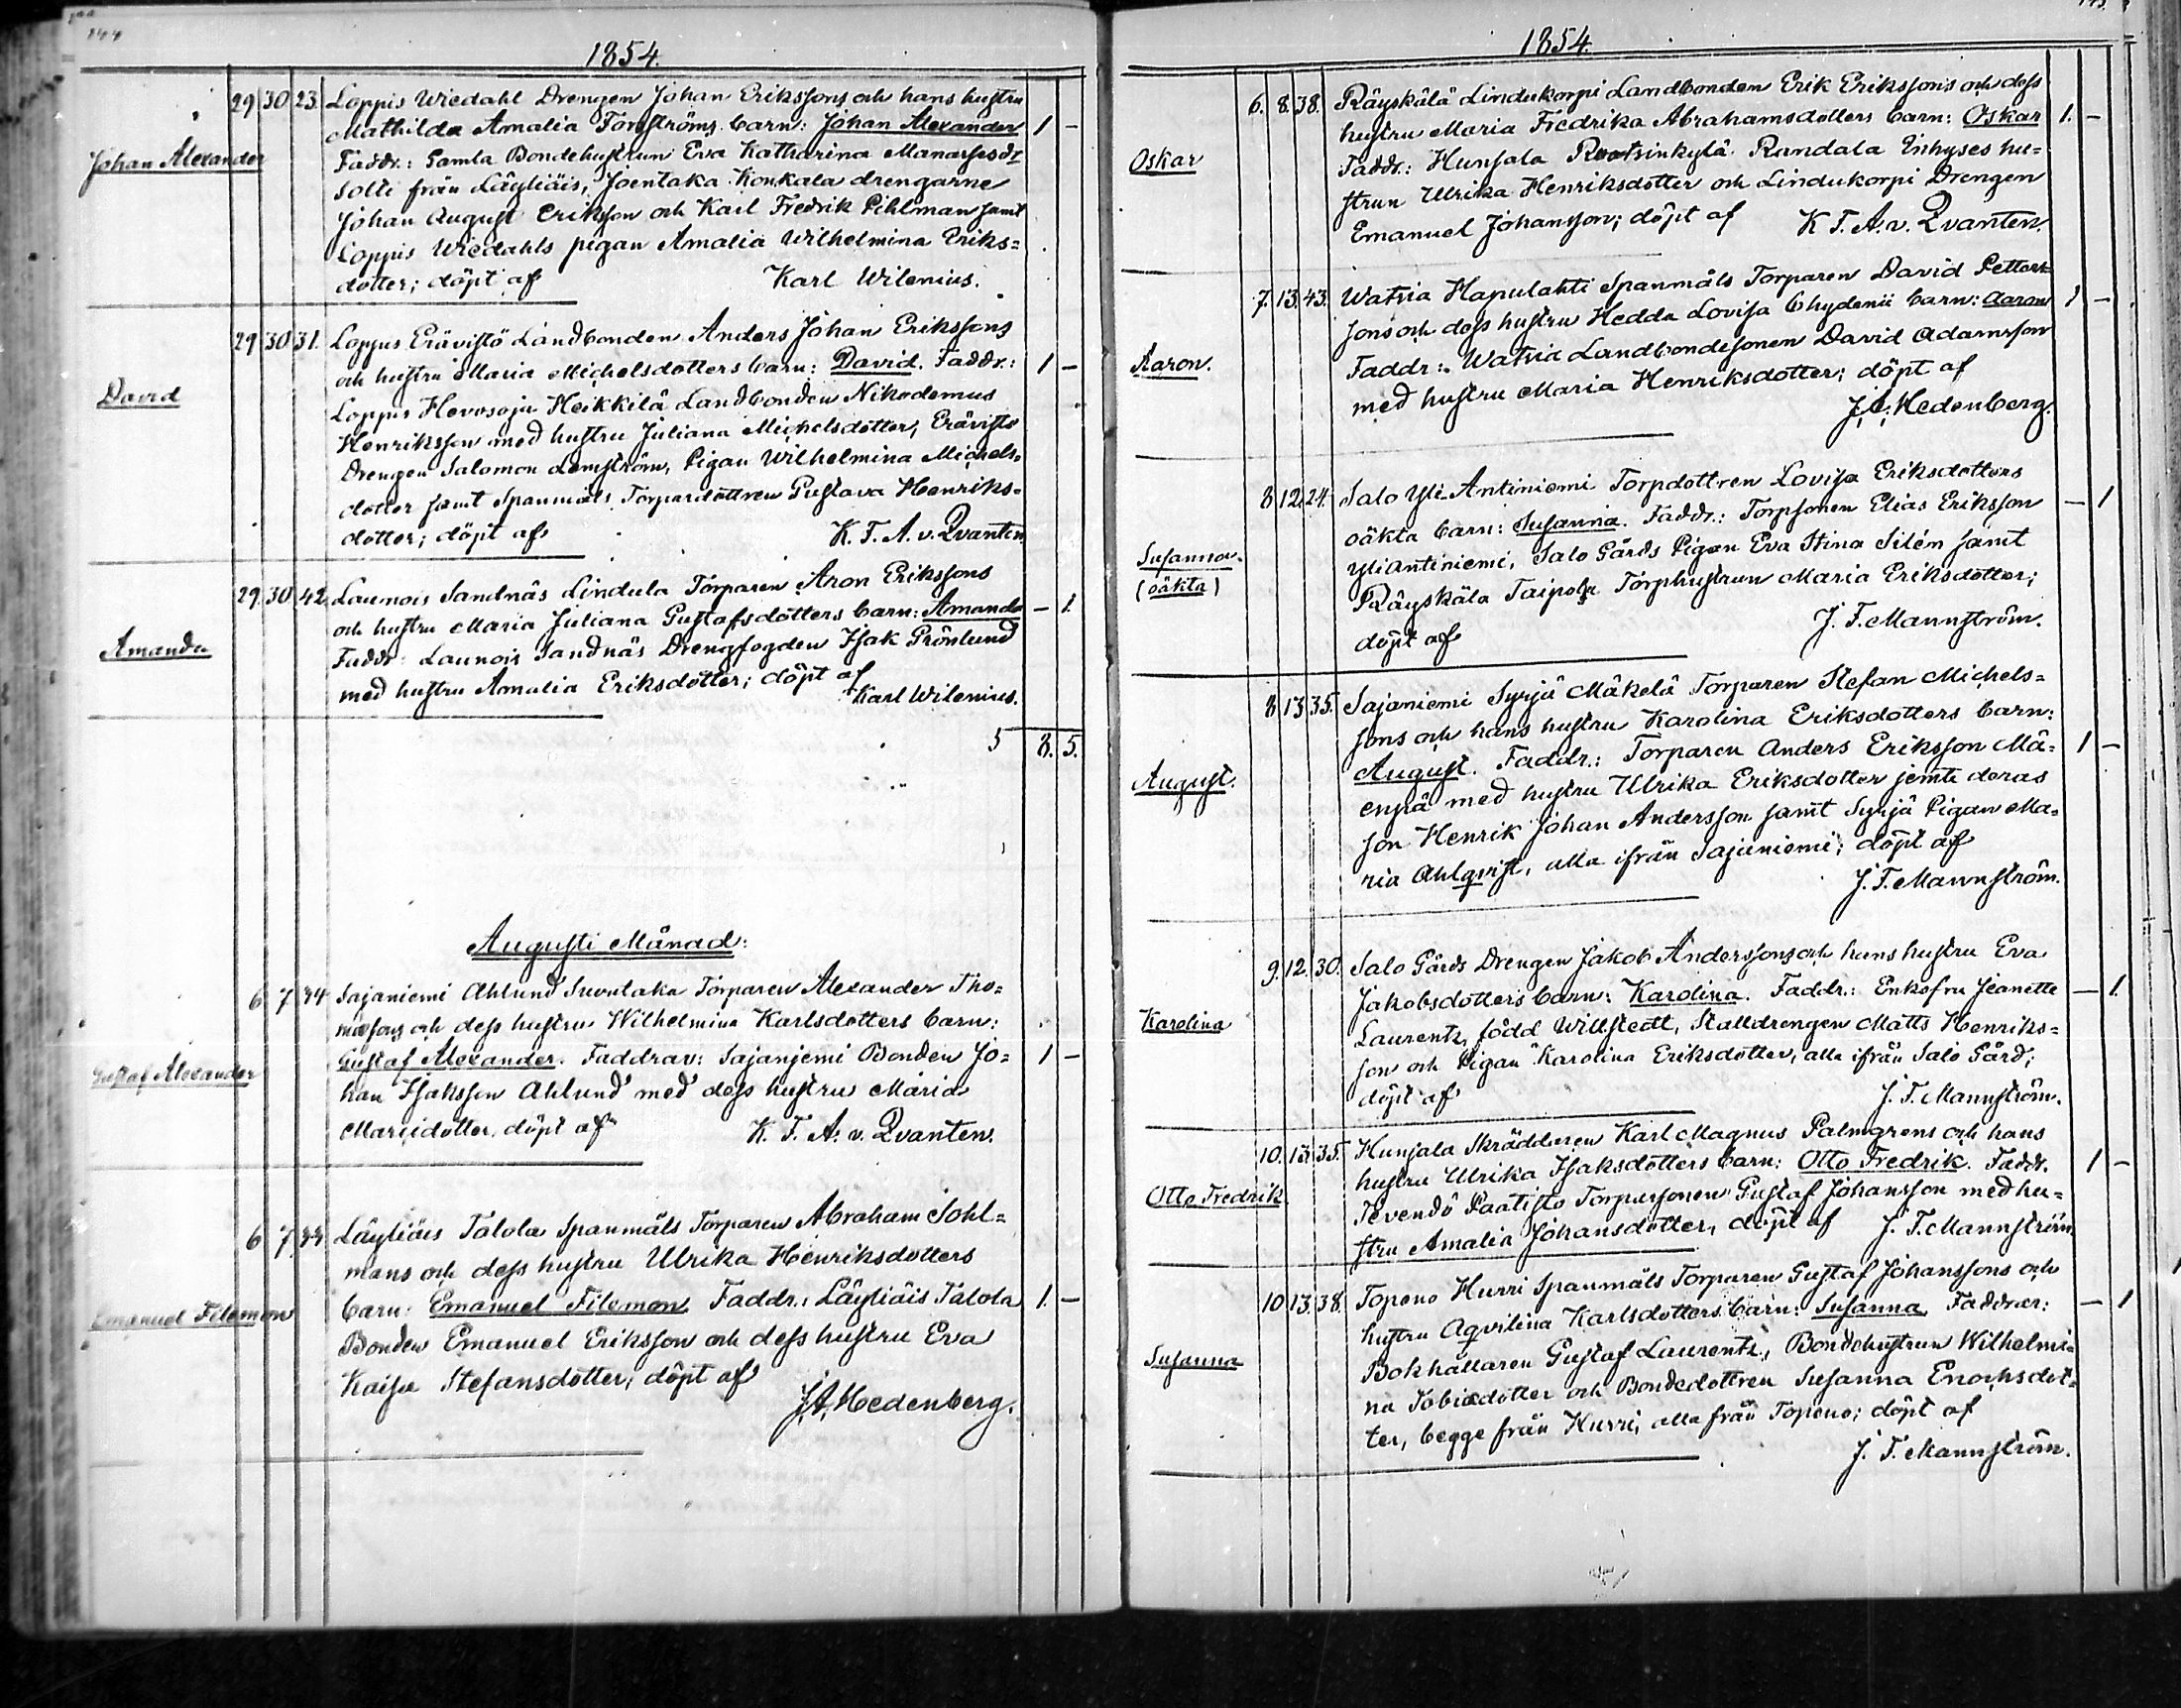 144
1854.
Johan Alexander
29 30 23. Loppis Wiedahl Drengen Johan Erikssons och hans hustru
Mathilda Amalia Tornströms barn: Johan Alexander 1 –
Faddr.: Gamla Bondehustrun Eva Katharina Manassesdr
Solti från Läyliäis, Joentaka Konkala drengarne
Johan August Eriksson och Karl Fredrik Pihlman samt
Loppis Wiedahls pigan Amalia Wilhelmina Eriks=
dotter; döpt af Karl Wilenius.
David
29 30 31. Loppis Erävistö Landbonden Anders Johan Erikssons
och hustru Maria Michelsdotters barn: David. Faddr.: 1 –
Loppis Hevosoja Heikkilä Landbonden Nikodemus
Henriksson med hustru Juliana Michelsdotter, Erävistö
Drengen Salomon Lemström, Pigan Wilhelmina Michels=
dotter samt Spanmäls Torparedottren Gustava Henriks=
dotter; döpt af K. T. A. v. Qvanten.
Amanda
29 30 42. Launois Sandnäs Lindula Torparen Aron Erikssons
och hustru Maria Juliana Gustafsdotters barn: Amanda – 1.
Faddr: Launois Sandnäs Drengfogden Isak Grönlund
med hustru Amalia Eriksdotter; döpt af
Karl Wilenius.
8. 5.
Augusti Månad:
Gustaf Alexander
6 7 34 Sajaniemi Ahlund Suontaka Torparen Alexander Tho=
massons och dess hustru Wilhelmina Karlsdotters barn:
Gustaf Alexander. Faddrar: Sajaniemi Bonden Jo= 1 –
han Isaksson Ahlund med dess hustru Maria
Mariidotter, döpt af K. T. A. v. Qvanten.
Emanuel Filemon
6 7 44 Läyliäis Talola Spanmäls Torparen Abraham Sohl=
mans och dess hustru Ulrika Henriksdotters
barn: Emanuel Filemon. Faddr.: Läyliäis Talola 1. –
Bonden Emanuel Eriksson och dess hustru Eva
Kaisa Stefansdotter; döpt af
J. A. Hedenberg.
145.
1854.
Oskar
6. 8. 38. Räyskälä Lindukorpi Landbonden Erik Erikssons och dess
hustru Maria Fredrika Abrahamsdotters barn: Oskar 1. –
Faddr.: Hunsala Rootsinkylä Randala Inhyses hu=
strun Ulrika Henriksdotter och Lindukorpi Drengen
Emanuel Johansson; döpt af K. T. A. v. Qvanten.
Aaron.
7. 13. 43. Watsia Hapulahti Spanmäls Torparen David Petters=
sons och dess hustru Hedda Lovisa Chydenii barn: Aaron 1 –
Faddr: Watsia Landbondesonen David Adamsson
med hustru Maria Henriksdotter; döpt af
J. A. Hedenberg.
Susanna.
(oäkta)
8 12. 24. Salo Yli-Antiniemi Torpdottren Lovisa Eriksdotters
oäkta barn: Susanna. Faddr.: Torpsonen Elias Eriksson – 1
Yliantiniemi, Salo Gårds Pigan Eva Stina Silén samt
Räyskälä Taipola Torphustrun Maria Eriksdotter;
döpt af J. T. Mannström.
August.
8 13 35. Sajaniemi Syrjä Mäkelä Torparen Stefan Michels=
sons och hans hustru Karolina Eriksdotters barn:
August. Faddr.: Torparen Anders Eriksson Mä= 1 –
enpä med hustru Ulrika Eriksdotter jemte deras
son Henrik Johan Andersson samt Syrjä Pigan Ma=
ria Ahlqvist, alla ifrån Sajaniemi; döpt af
J. T. Mannström.
Karolina
9. 12. 30. Salo Gårds Drengen Jakob Anderssons och hans hustru Eva
Jakobsdotters barn: Karolina. Faddr.: Enkefru Jeanette – 1.
Laurentz, född Willstedt, Stalldrengen Matts Henriks=
son och Pigan Karolina Eriksdotter, alla ifrån Salo Gård;
döpt af J. T. Mannström.
Otto Fredrik.
10. 13. 35. Hunsala Skräddaren Karl Magnus Palmgrens och hans
hustru Ulrika Isaksdotters barn: Otto Fredrik. Faddr. 1 –
Tevendö Paatisto Torparsonen Gustaf Johansson med hu=
stru Amalia Johansdotter, döpt af J. T. Mannström.
Susanna
10 13. 38. Topeno Hurri Spanmäls Torparen Gustaf Johanssons och
hustru Aqvilina Karlsdotters barn: Susanna Faddrar: – 1
Bokhållaren Gustaf Laurentz, Bondehustrun Wilhelmi=
na Tobiædotter och Bondedottren Susanna Enochsdot=
ter, begge från Hurri, alla från Topeno; döpt af
J. T. Mannström.